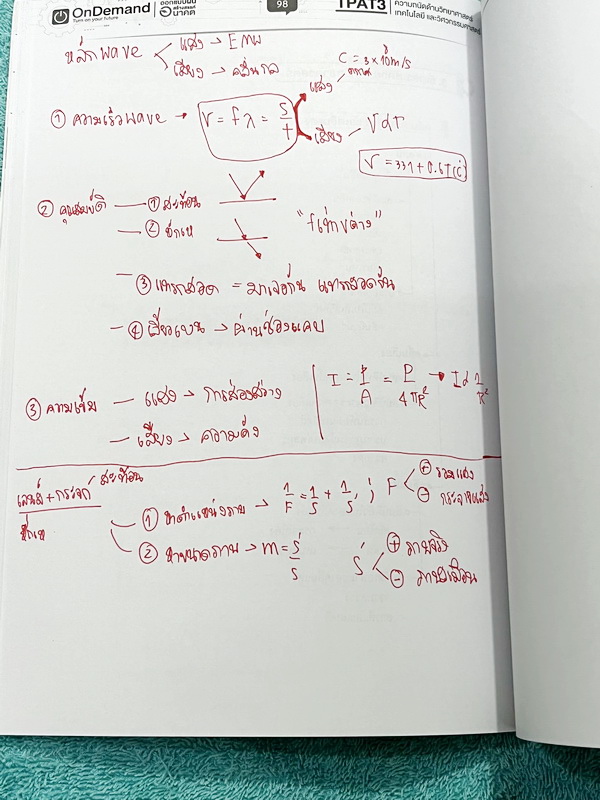 OnDemand
Turn on your future
ออกแบบฝัน
สร้างสรรค์
อนาคต
98
TPAT3
ความถนัดด้านวิทยาศาสตร์
เทคโนโลยี และวิศวกรรมศาสตร์
หลักwave
แสง → EMW
เสียง → คลื่นกล
① ความเร็วwave → v = fλ = S/t
แสง
C = 3 × 10⁸ m/s
เสียง — V α T
V = 331 + 0.6T(C)
② คุณสมบัติ — ① สะท้อน
— ② หักเห
"fเท่า vต่าง"
— ③ แทรกสอด = มาเจอกัน แทรกสอดกัน
— ④ เลี้ยวเบน → ผ่านช่องแคบ
③ ความเข้ม — แสง → การส่องสว่าง
I = P/A = P/4πR² → I α 1/R²
— เสียง → ความดัง
เลนส์ + กระจก สะท้อน
หักเห
① หาตำแหน่งภาพ → 1/F = 1/S + 1/S' ; F
⊕ รวมแสง
⊖ กระจายแสง
② หาขนาดภาพ → m = S'/S
S'
⊕ ภาพจริง
⊖ ภาพเสมือน